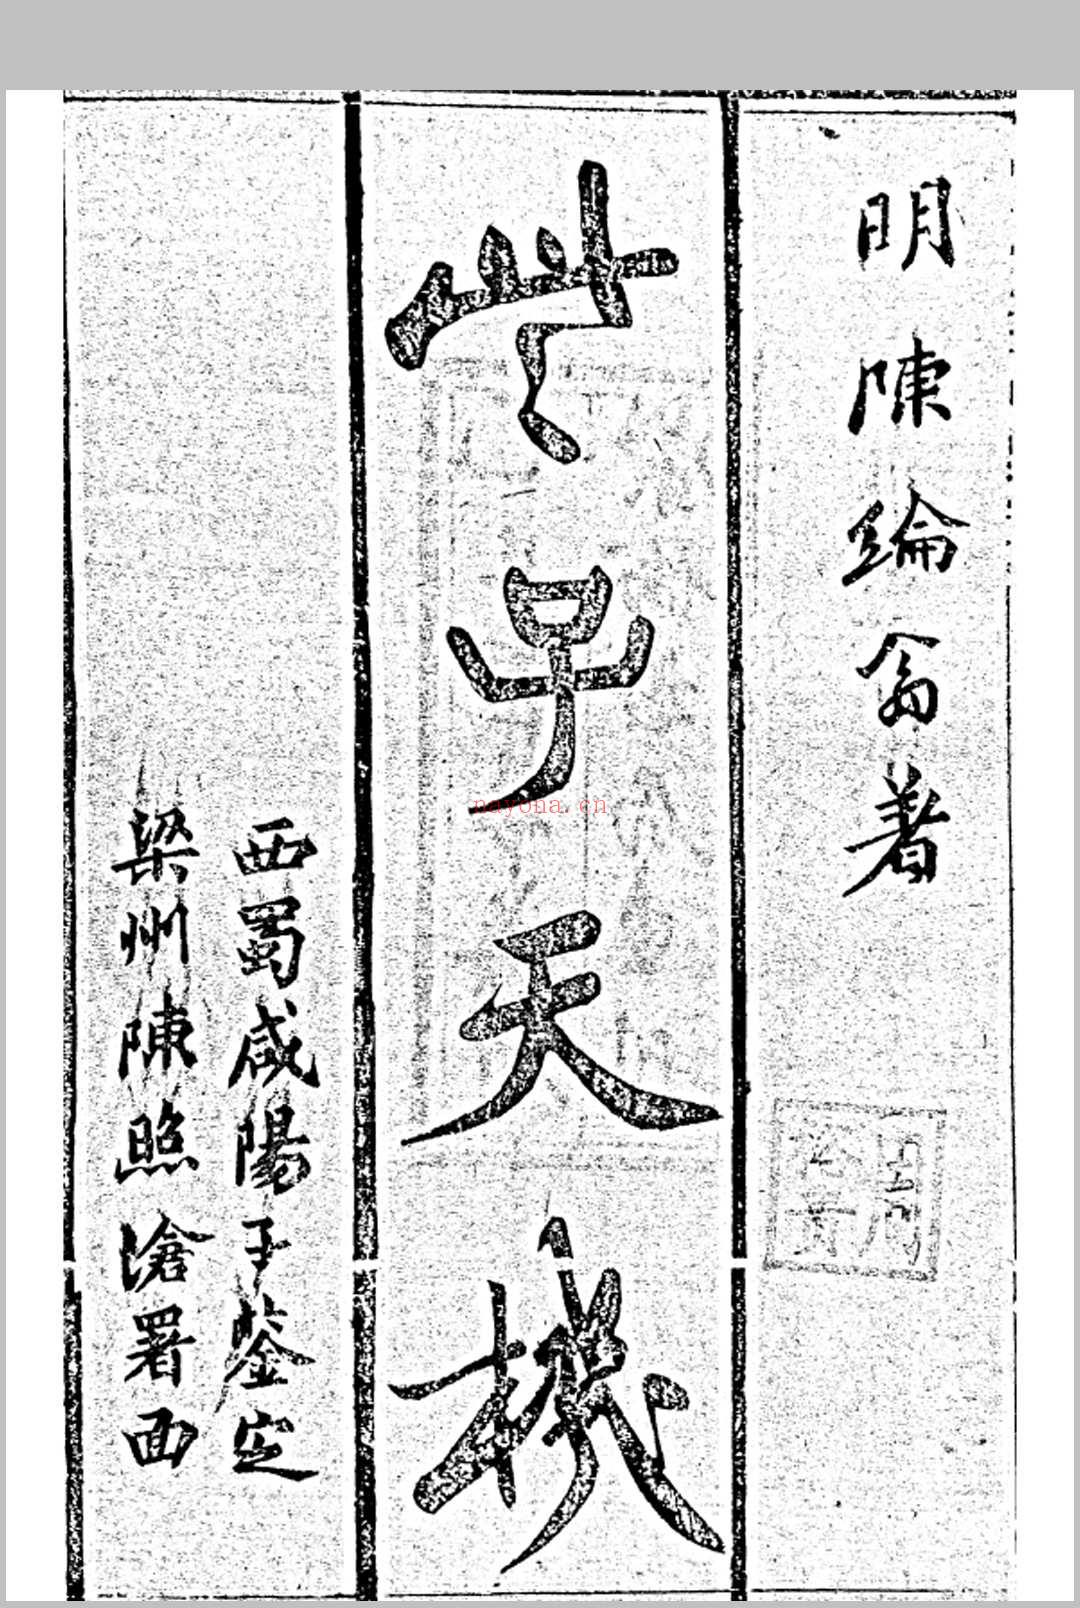 明陳綸著
子天機
西蜀咸陽子鑒定
梁州陳照滄署面
nayona.cn